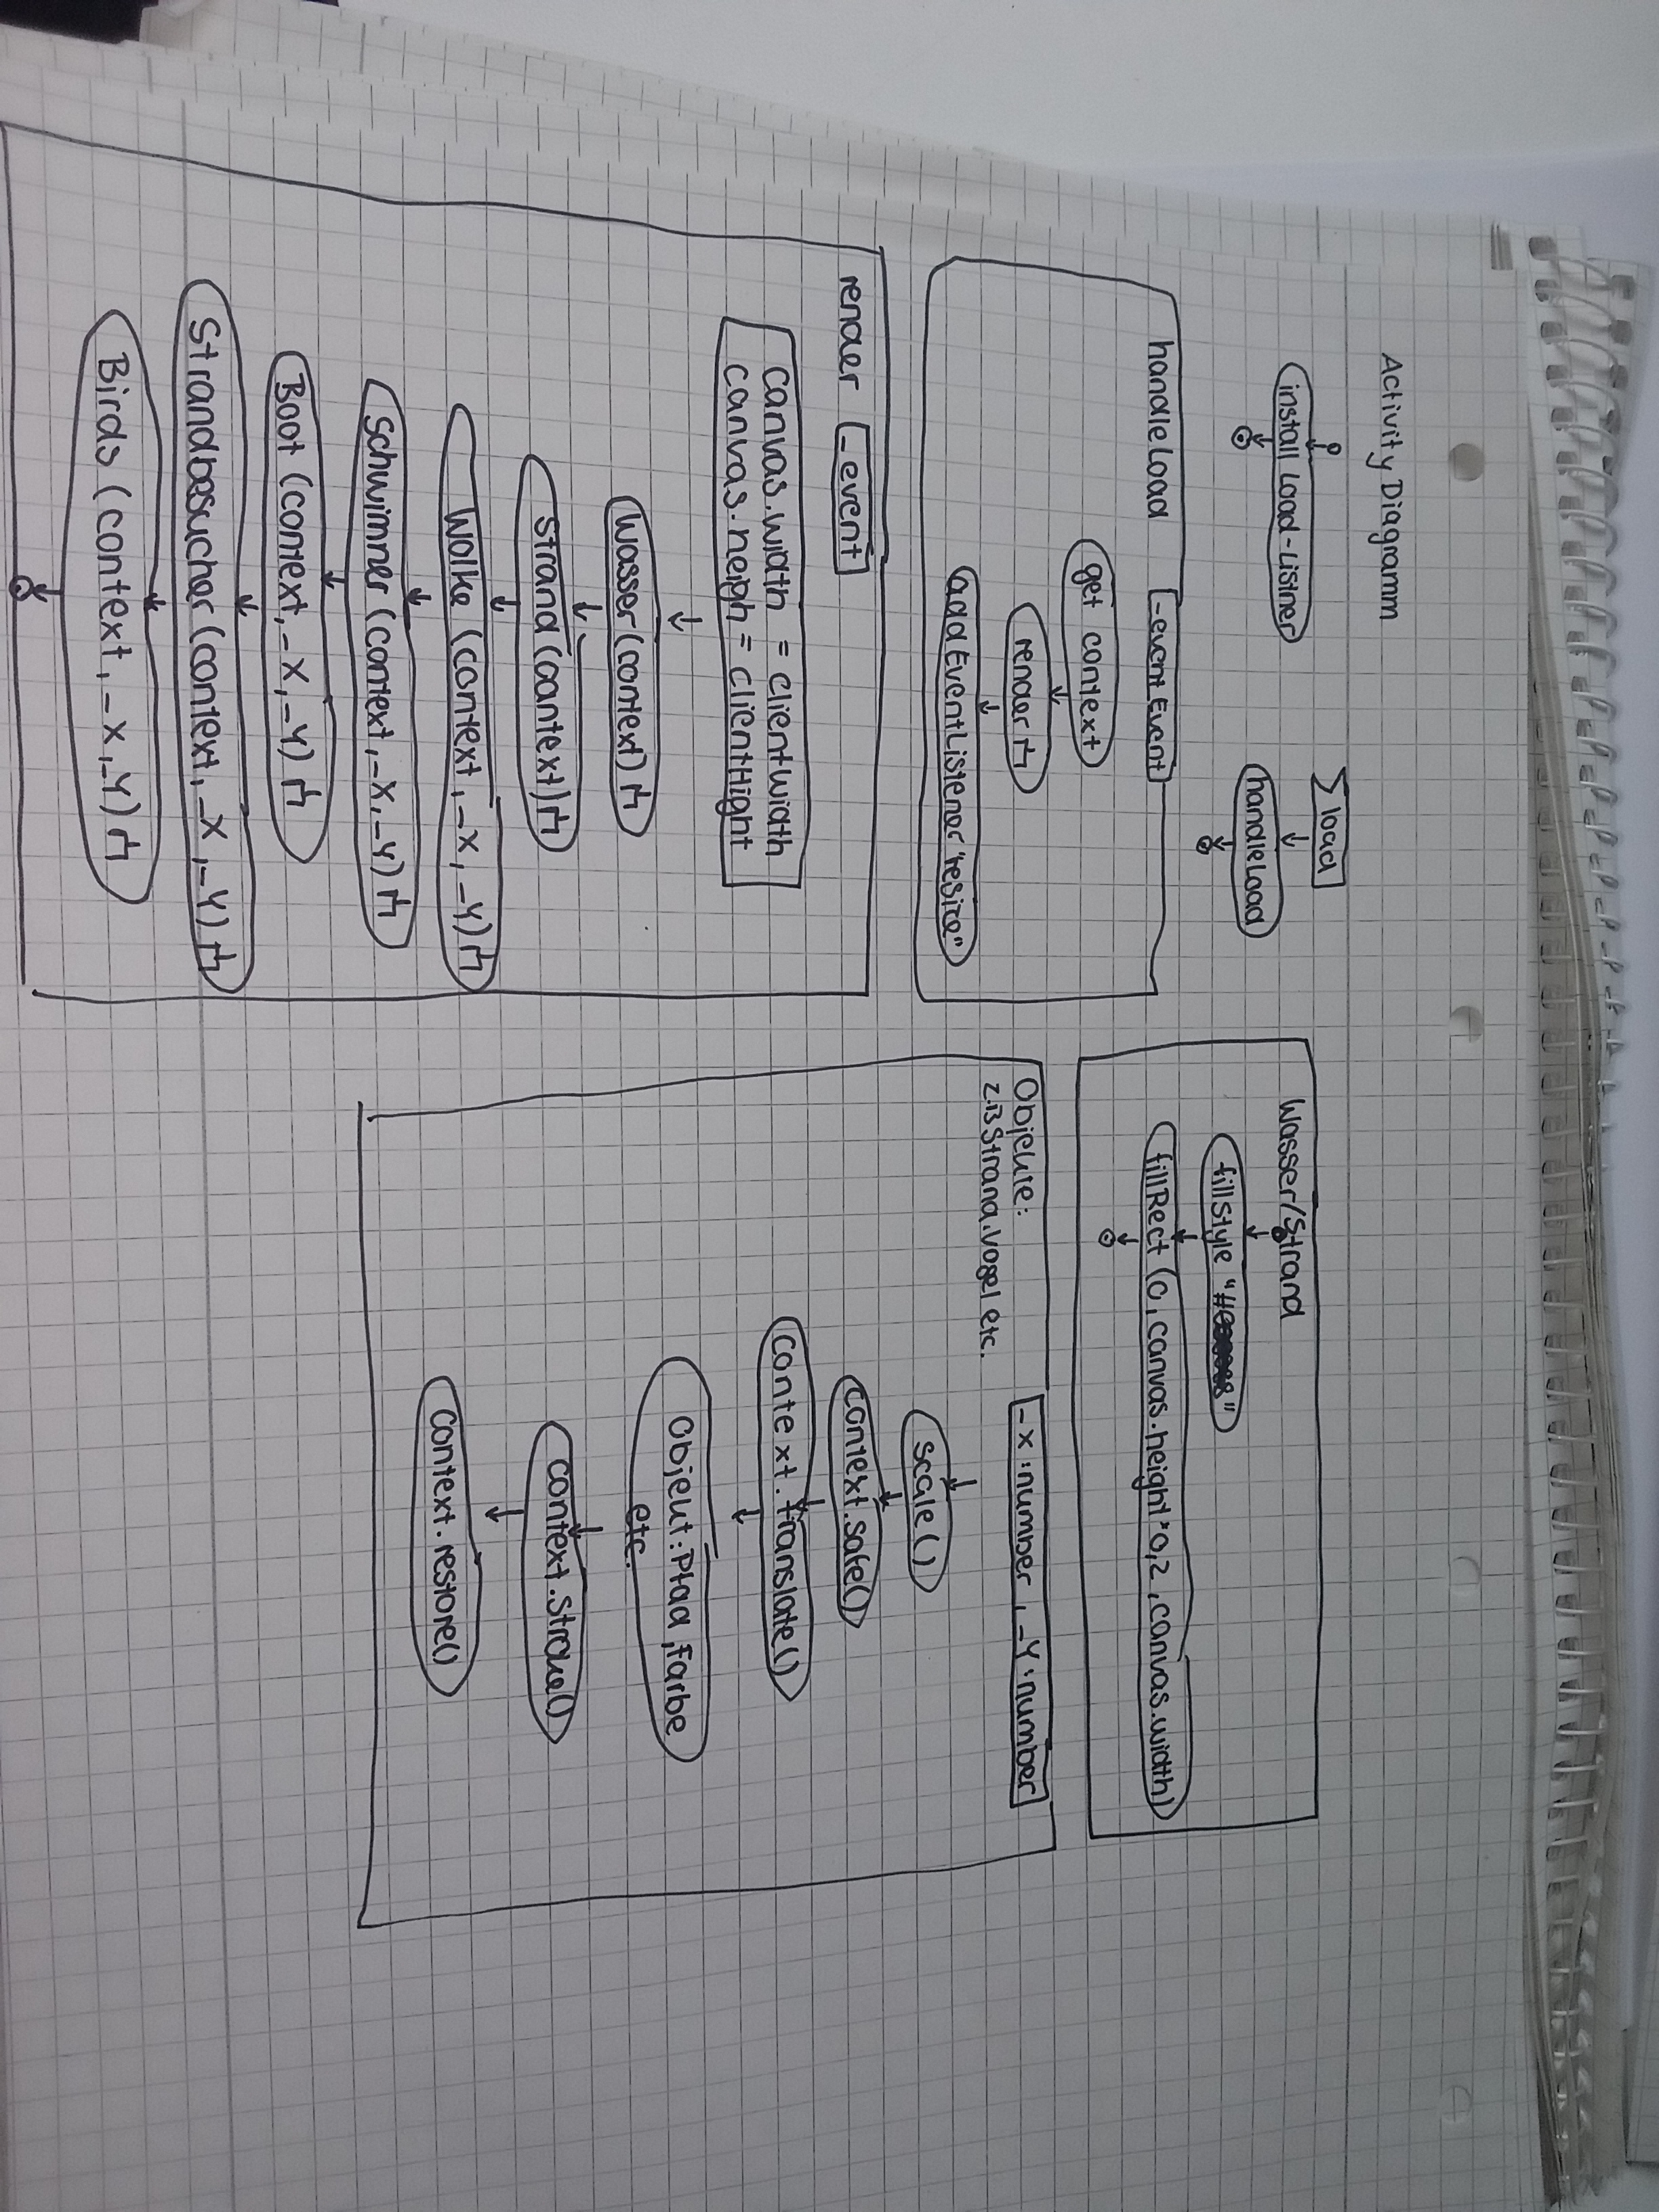 Activity Diagramm
install Load-Listner
load
handleLoad
handleLoad
_evcnt Event
get context
render
addEventListener "resize"
render
_event
canvas.width = clientwidth
canvas.heigh = clientHight
Wasser (context)
Strand (context)
Wolke (context, _X, _Y)
Schwimmer (context, _X, _Y)
Boot (context, _X, _Y)
Strandbesucher (context, _X, _Y)
Birds (context, _X, _Y)
Wasser/Strand
fillStyle "#
"
fillRect (0, canvas.height*0,2, canvas.width)
Objekte:
z.B Strand, Vogel etc.
_X:number, _Y:number
scale()
context.safe()
context.translate()
Objekt: Pfad, Farbe
etc.
context.stroke()
context.restore()